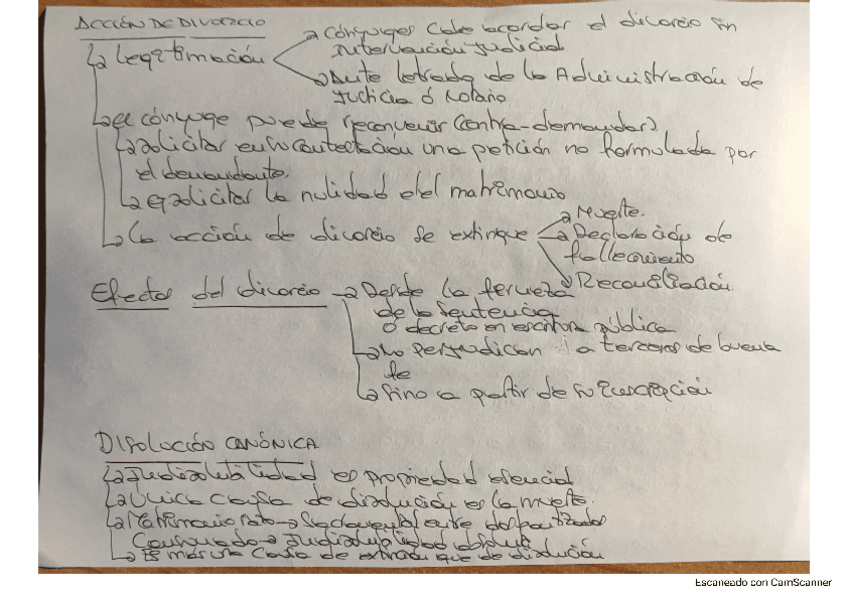 ACCIÓN DE DIVORCIO
Legitimación
Cónyuges cabe acordar el divorcio sin
intervención judicial
Ante letrado de la Administración de
Justicia ó Notario
El cónyuge puede reconvenir (contra-demandar)
Solicitar en su contestación una petición no formulada por
el demandante.
Ej solicitar la nulidad del matrimonio
La acción de divorcio se extingue
Muerte.
Declaración de
fallecimiento
Reconciliación.
Efectos del divorcio
Desde la firmeza
de la sentencia
ó decreto en escritura pública
No perjudican a terceros de buena
fe
Sino a partir de su inscripción
DISOLUCIÓN CANÓNICA
Indisolubilidad es propiedad esencial
Única causa de disolución es la muerte.
Matrimonio rato → Sacramental entre dos bautizados
Consumado → Indisolubilidad absoluta
Es más una causa de extinción que de disolución
Escaneado con CamScanner